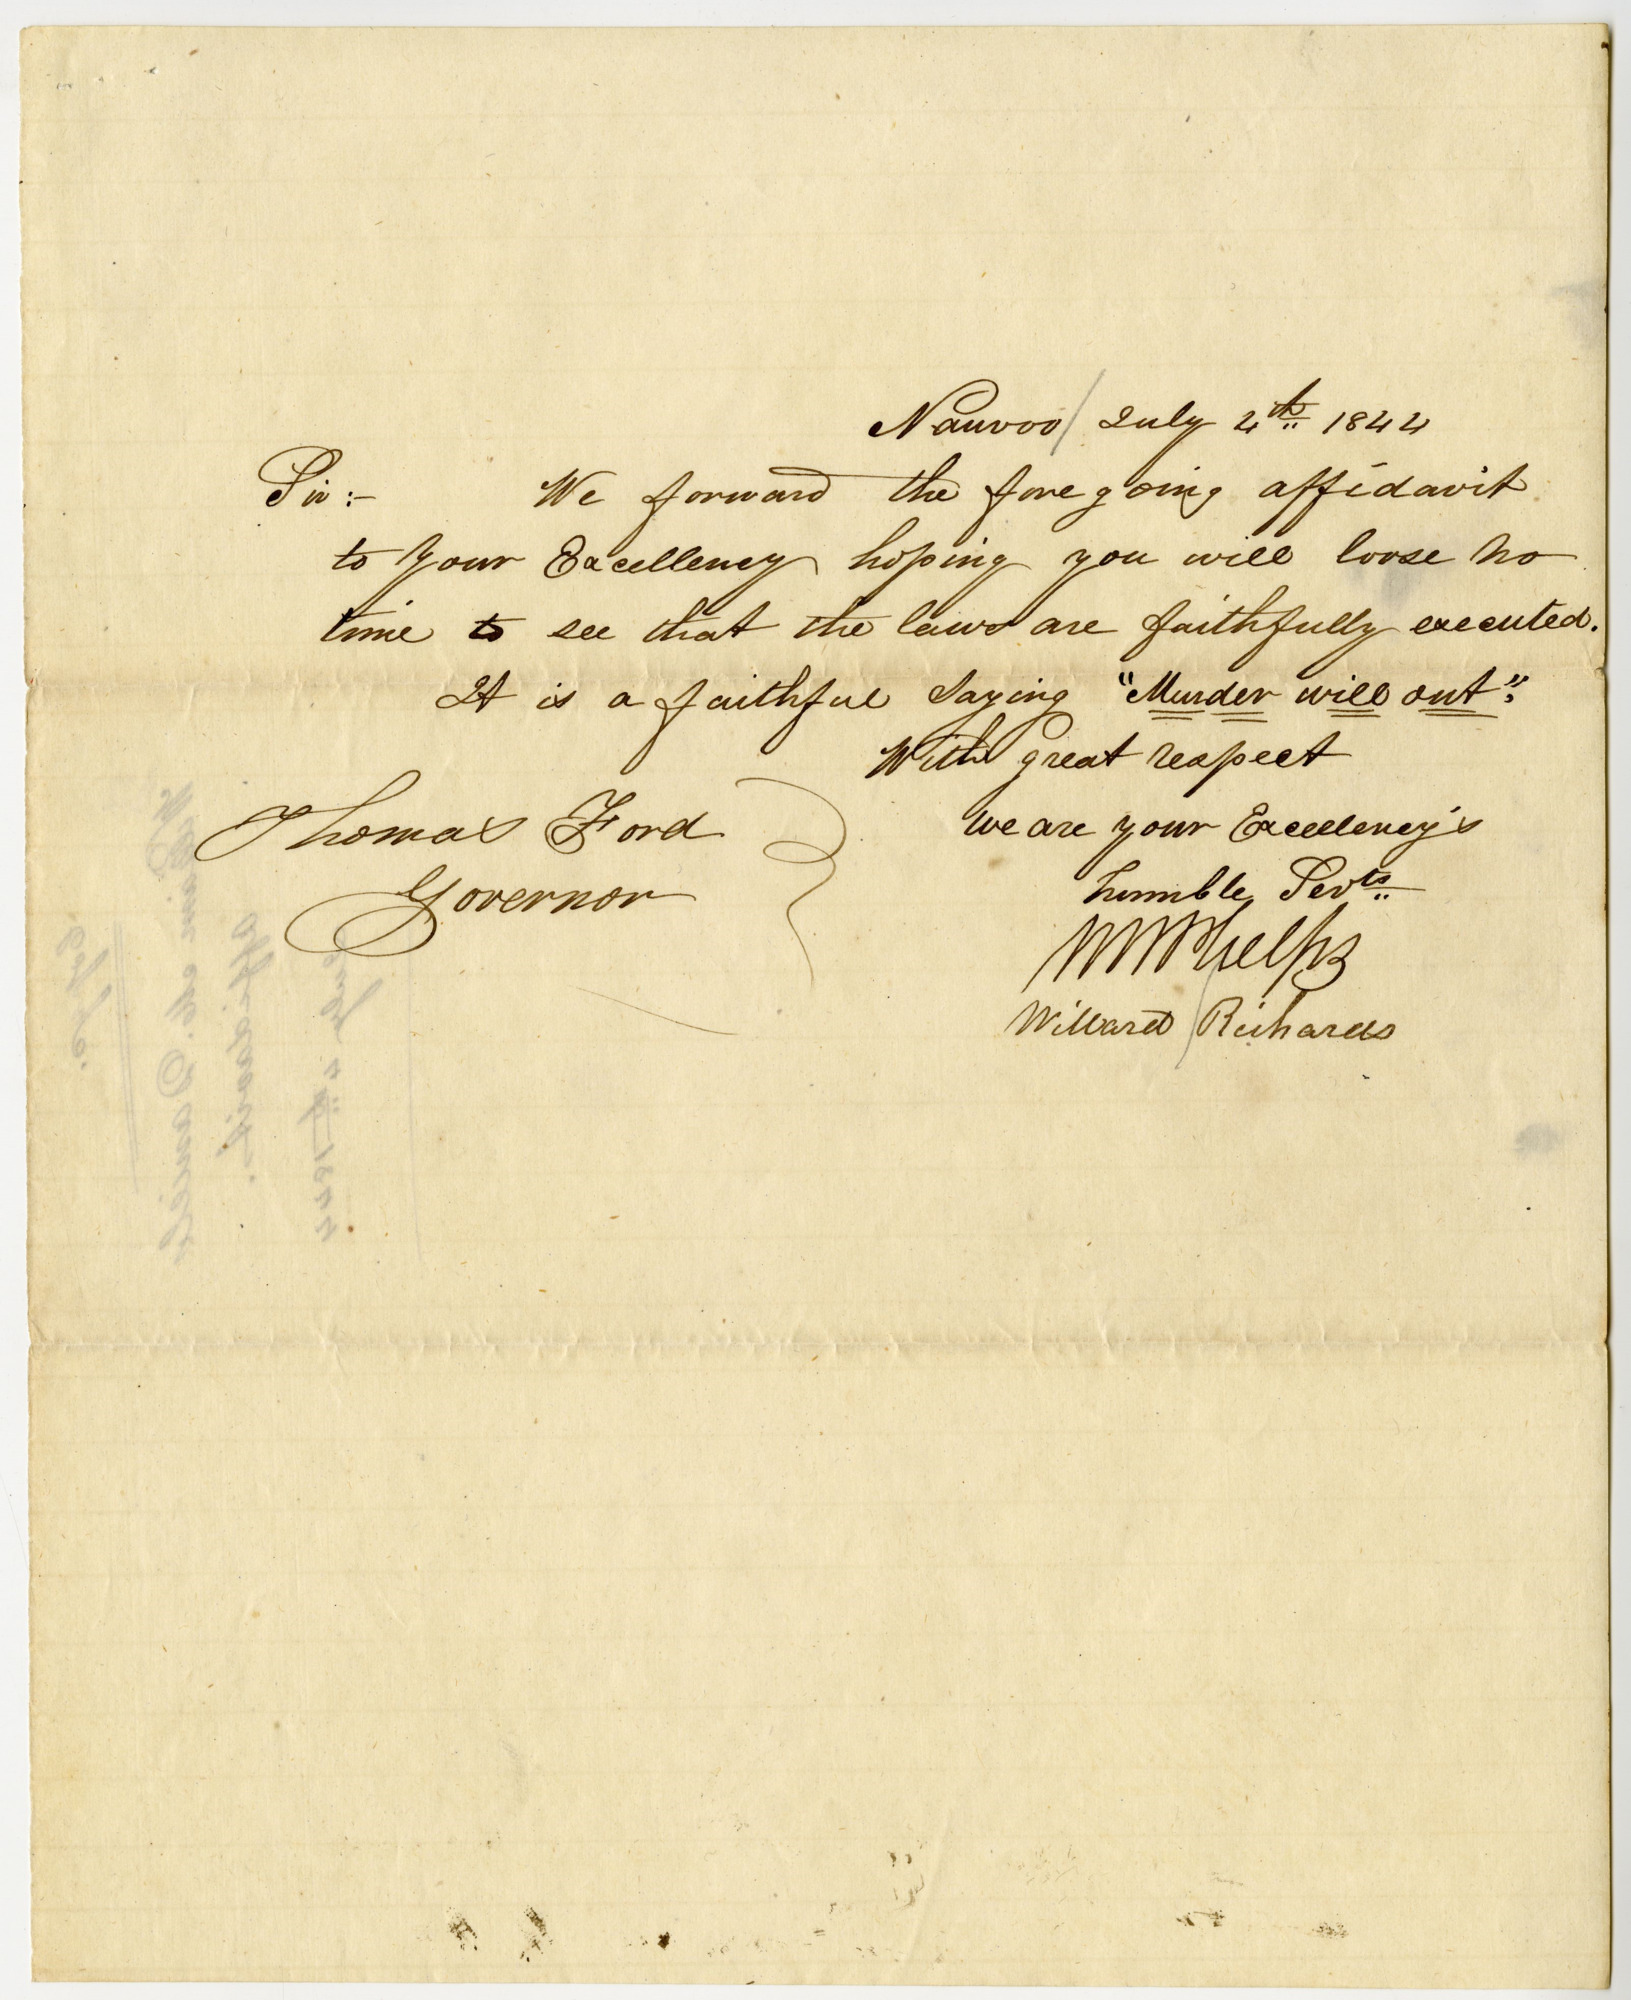 Nauvoo July 4th 1844
Sir :- We forward the foregoing affidavit
to your Excellency hoping you will loose no
time to see that the laws are faithfully executed.
It is a faithful saying "Murder will out":
With great respect
we are your Excellency's
humble Servts
Thomas Ford
Governor
W W Phelps
Willard Richards
William M. Daniels
affidavit.
July 4th 1844
Copy.